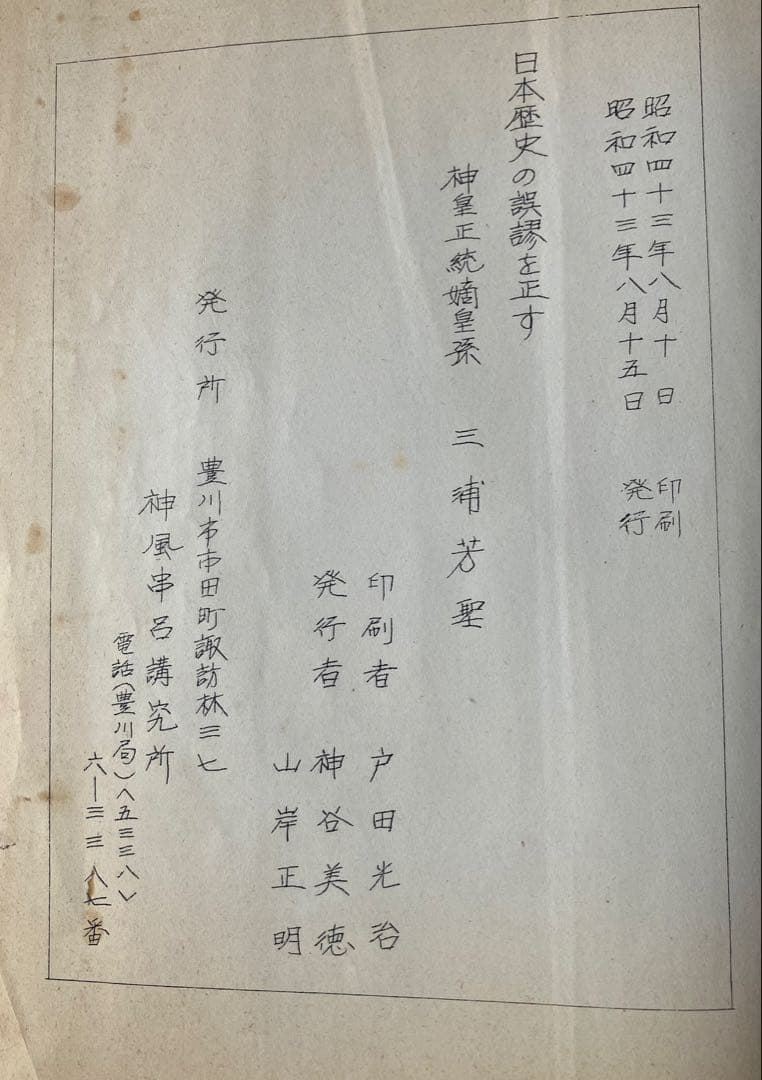 昭和四十三年八月十日 印刷
昭和四十三年八月十五日 発行
日本歴史の誤謬を正す
神皇正統嫡皇孫 三浦芳聖
印刷者 戸田光治
発行者 神谷美徳
山岸正明
発行所 豊川市市田町諏訪林三七
神風串呂講究所
電話(豊川局)〈五三三八〉
六―三三八七番